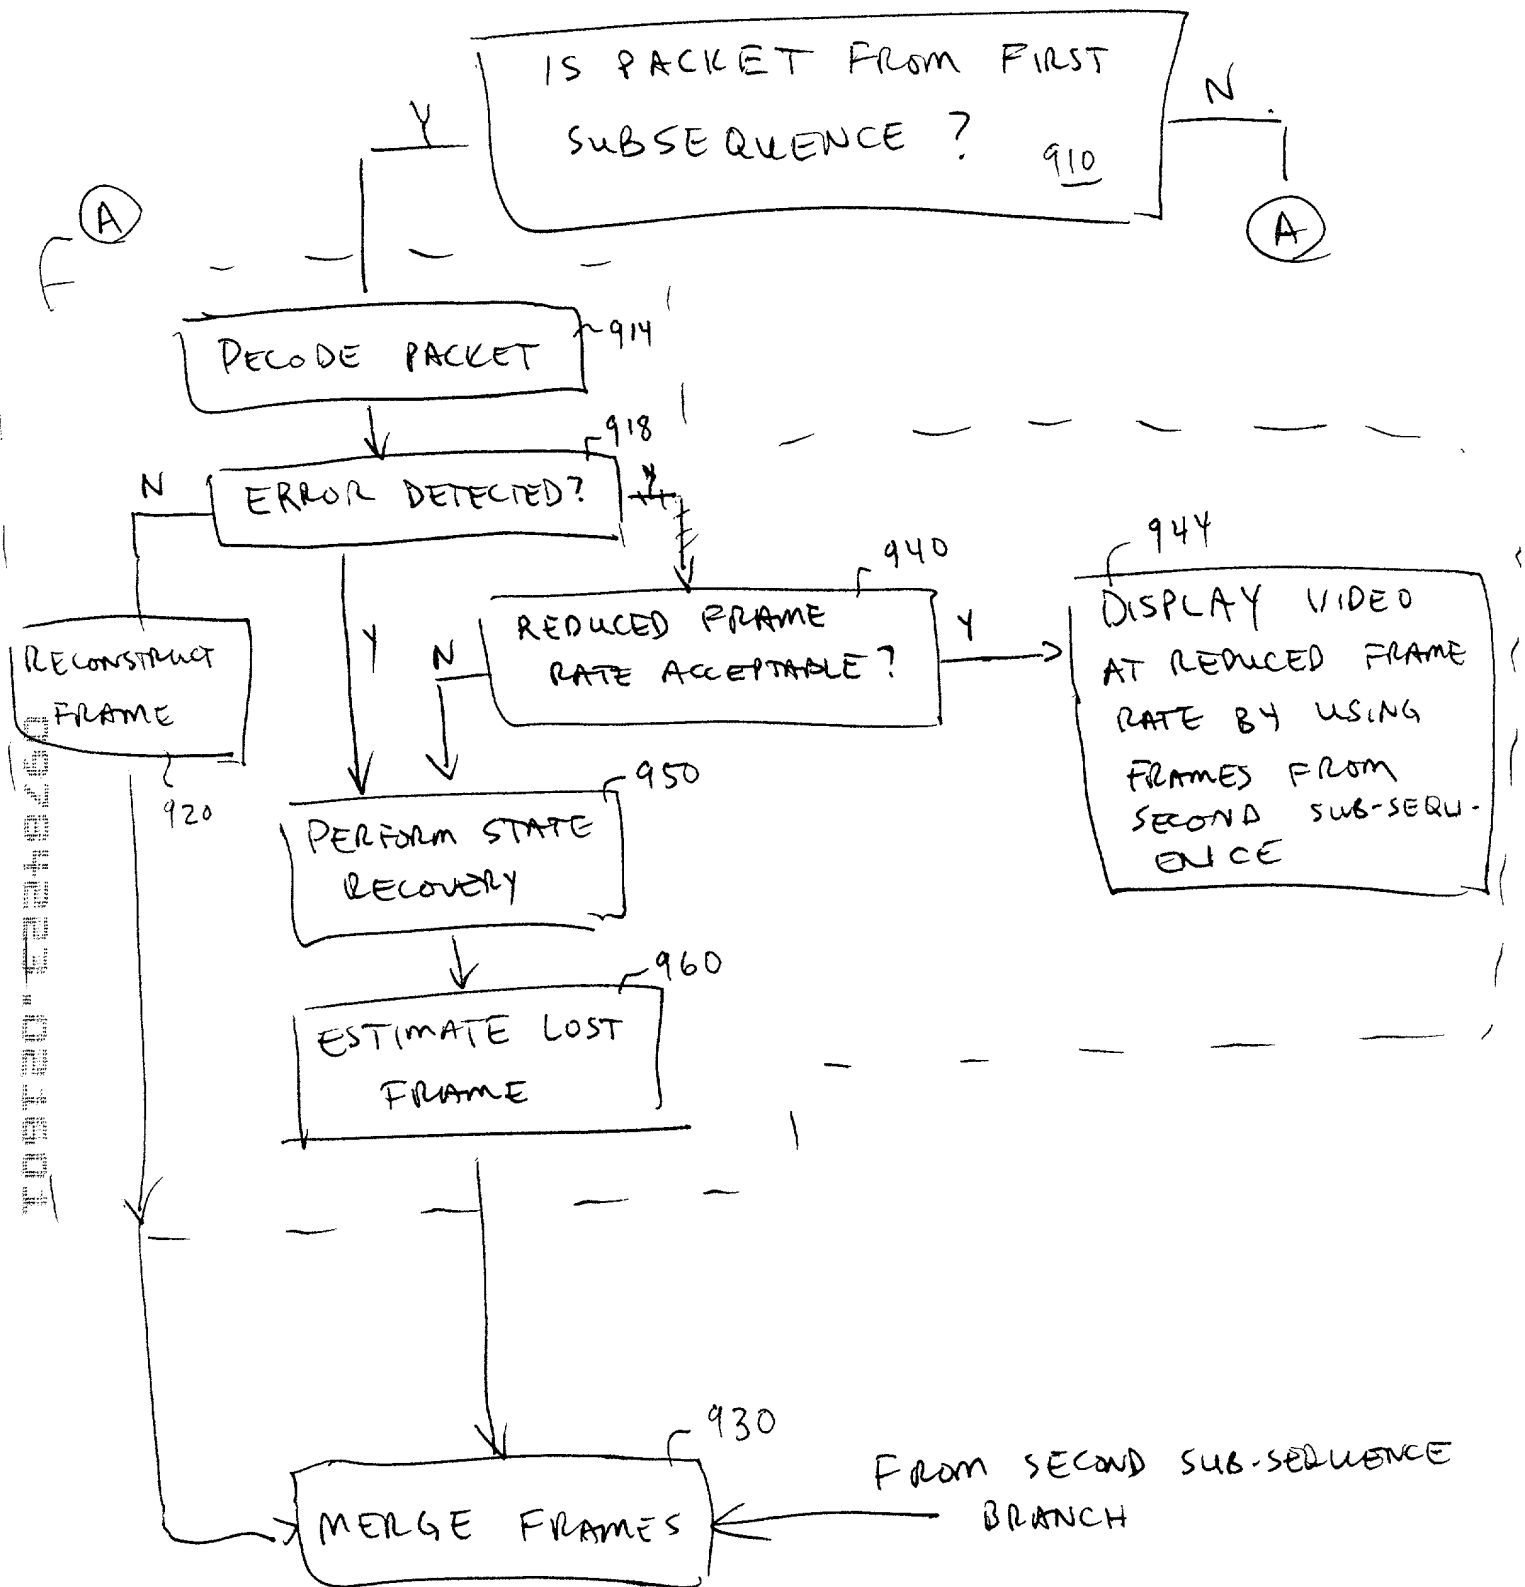 IS PACKET FROM FIRST
SUBSEQUENCE ?
910
Y
N
A
A
DECODE PACKET
914
918
N
ERROR DETECTED?
Y
940
944
REDUCED FRAME
RATE ACCEPTABLE?
N
Y
Y
DISPLAY VIDEO
AT REDUCED FRAME
RATE BY USING
FRAMES FROM
SECOND SUB-SEQU-
ENCE
RECONSTRUCT
FRAME
920
950
PERFORM STATE
RECOVERY
960
ESTIMATE LOST
FRAME
930
MERGE FRAMES
FROM SECOND SUB-SEQUENCE
BRANCH
09784223.021501